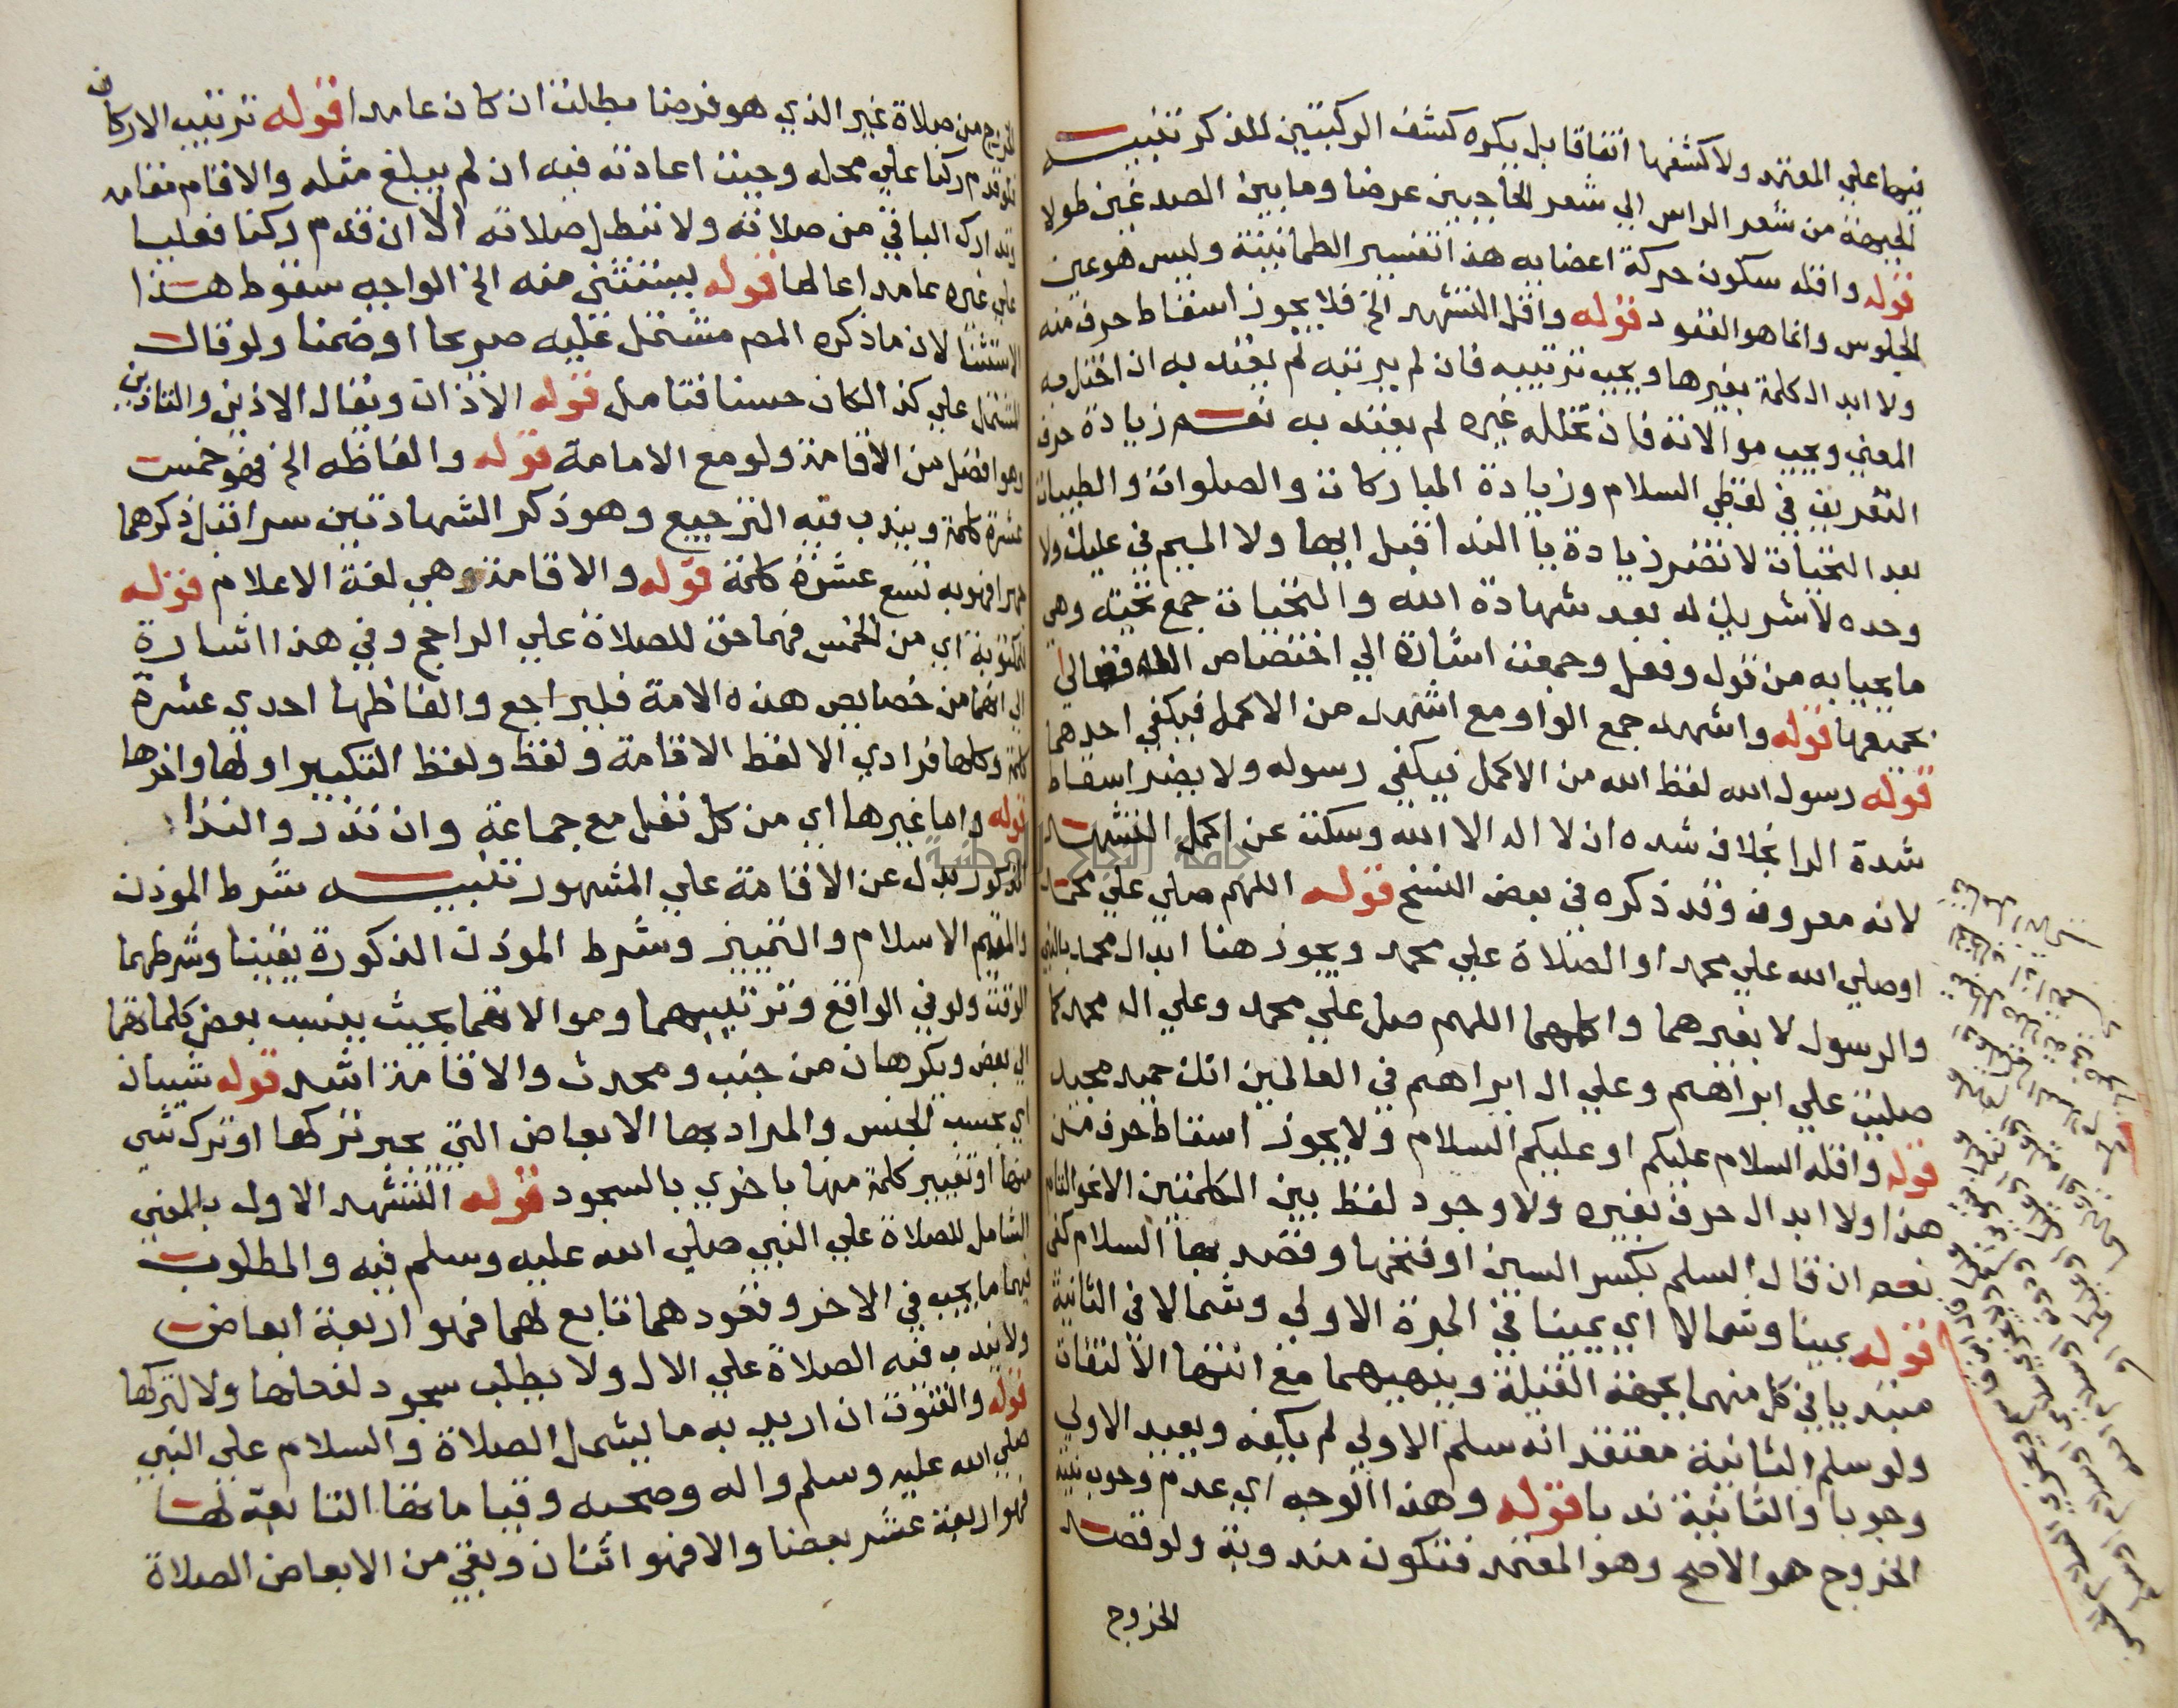 فيها علي المعتمد ولا كشفها اتفاقا بل يكره كشف الركبتين للذكر تنبيه
الجبهة من شعر الراس الي شعر الحاجبين عرضا وما بين الصدغين طولا
قوله واقله سكون حركة اعضايه هذا تفسير الطمانينة وليس هو عين
الجلوس وانما هو القعود قوله واقل التشهد الخ فلا يجوز اسقاط حرف منه
ولا ابدال كلمة بغيرها ويجب ترتيبه فان لم يرتبه لم يعتد به ان اختل به
المعني ويجب موالاته فان تخلله غيره لم يعتد به نعم زيادة حرف
التعريف في لفظي السلام وزيادة المباركات والصلوات والطيبات
بعد التحيات لا تضر زيادة يا النداقبل ايها ولا الميم في عليك ولا
وحده لا شريك له بعد شهادة الله والتحيات جمع تحية وهي
ما يحيا به من قول وفعل وجمعت اشارة الي اختصاص الله تعالي
بجميعها قوله واشهد جمع الواو مع اشهد من الاكمل فيكفي احدهما
قوله رسول الله لفظ الله من الاكمل فيكفي رسوله ولا يضر اسقاط
شدة الرا بخلاف شده ان لا اله الا الله وسكت عن اكمل التشهد
لانه معروف وقد ذكره في بعض النسخ قوله اللهم صلي علي محمد
اوصلي الله علي محمد او الصلاة علي محمد ويجوز هنا ابدال محمد بالنبي
والرسول لا بغيرهما واكملها اللهم صل علي محمد وعلي ال محمد كما
صليت علي ابراهيم وعلي ال ابراهيم في العالمين انك حميد مجيد
قوله واقله السلام عليكم او عليكم السلام ولا يجوز اسقاط حرف من
هذا ولا ابدال حرف بغيره ولا وجود لفظ بين الكلمتين الا نحو التام
نعم ان قال السلم بكسر السين او فتحها وقصد بها السلام كفي
قوله يمينا وشمالا اي يمينا في المرة الاولي وشمالا في الثانية
مبتديا في كل منهما بجهة القبلة وينهيهما مع انتها الالتفات
ولو سلم الثانية معتقدا انه سلم الاولي لم يكفه ويعيد الاولي
وجوبا والثانية ندبا قوله وهذا الوجه اي عدم وجوب نية
الخروج هو الاصح وهو المعتمد فتكون مندوبة ولو قصد
الخروج
الخروج من صلاة غير الذي هو فرضنا بطلت ان كان عامدا قوله ترتيب الاركان
فلو قدم ركنا علي محله وجبت اعادته فيه ان لم يبلغ مثله والا قام مقامه
وتدارك الباقي من صلاته ولا تبطل صلاته الا ان قدم ركنا فعليا
علي غيره عامدا عالما قوله يستثني منه الخ الواجه سقوط هذا
الاستثنا لان ما ذكره المص مشتمل عليه صريحا او ضمنا ولو قال
المشتمل علي كذا لكان حسنا فتامل قوله الاذان ويقال الاذين والتاذين
وهو افضل من الاقامة ولو مع الامامة قوله والفاظه الخ فهو خمس
عشرة كلمة ويندب فيه الترجيع وهو ذكر الشهادتين سرا قبل ذكرهما
جهرا فهو به تسع عشرة كلمة قوله والاقامة وهي لغة الاعلام قوله
للمكتوبة اي من الخمس فهما حق للصلاة علي الراجح وفي هذا اشارة
الي انهما من خصايص هذه الامة فليراجع والفاظها احدي عشرة
كلمة وكلها فرادي الا لفظ الاقامة ولفظ ولفظ التكبير اولها واخرها
قوله واما غيرها اي من كل نفل مع جماعة وان نذر والندا
المذكور بدل عن الاقامة علي المشهور تنبيه شرط الموذن
والمقيم الاسلام والتمييز وشرط الموذن الذكورة يقينا وشرطهما
الوقت ولو في الواقع وترتيبهما وموالاتهما بحيث ينسب بعض كلماتهما
الي بعض ويكرهان من جنب ومحدث والاقامة اشد قوله شيان
اي بحسب الجنس والمراد بها الابعاض التي يجبر تركها او ترك شي
منها او تغيير كلمة منها باخري بالسجود قوله التشهد الاول بالمعني
الشامل للصلاة علي النبي صلي الله عليه وسلم فيه والمطلوب
فيهما ما يجب في الاخر وقعودهما تابع لهما فهو اربعة ابعاض
ولا يندب فيه الصلاة علي الال ولا يطلب سجود لفعلها ولا لتركها
قوله والقنوت ان اريد به ما يشمل الصلاة والسلام علي النبي
صلي الله عليه وسلم واله وصحبه وقياماتها التابعة لها
فهو اربعة عشر بعضا والا فهو اثنان وبقي من الابعاض الصلاة
جامعة النجاح الوطنية